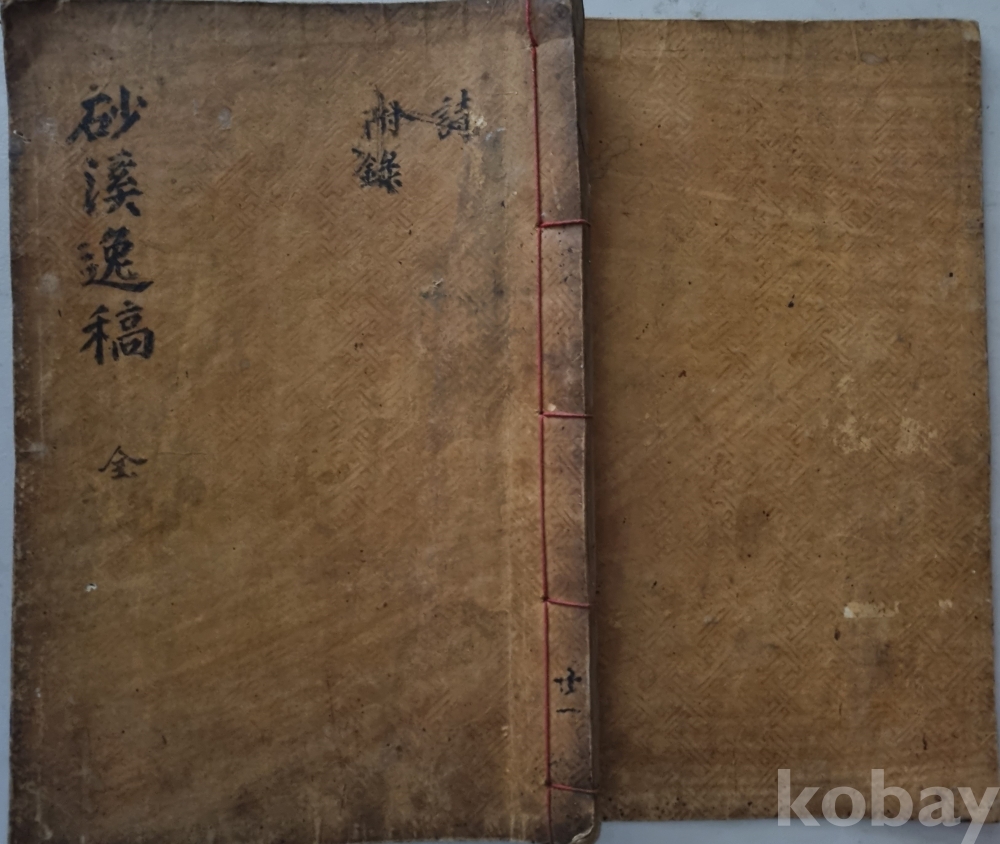 砂溪逸稿 全
詩
附錄
廿一
kobay